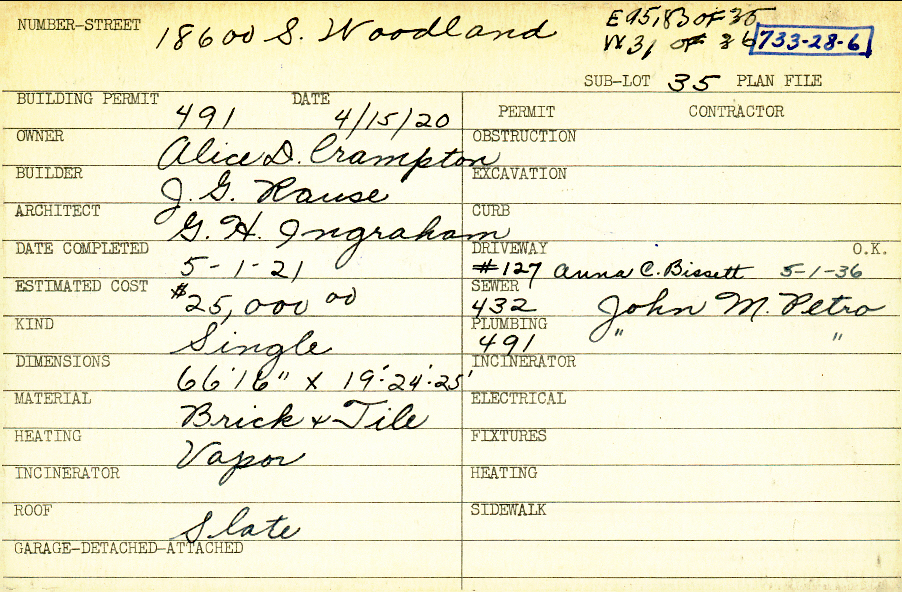 NUMBER-STREET 18600 S. Woodland
E 95,183 OF 35
W 31 OF 36 733-28-6
SUB-LOT 35 PLAN FILE
BUILDING PERMIT 491 DATE 4/15/20
OWNER Alice D. Crampton
BUILDER J. G. Rause
ARCHITECT G. H. Ingraham
DATE COMPLETED 5-1-21
ESTIMATED COST $25,000 00
KIND Single
DIMENSIONS 66'16" x 19'-24'-25'
MATERIAL Brick + Tile
HEATING Vapor
INCINERATOR
ROOF Slate
GARAGE-DETACHED-ATTACHED
PERMIT CONTRACTOR
OBSTRUCTION
EXCAVATION
CURB
DRIVEWAY O.K.
#127 Anna C. Bissett 5-1-36
SEWER
432 John M. Petro
PLUMBING
491 " "
INCINERATOR
ELECTRICAL
FIXTURES
HEATING
SIDEWALK